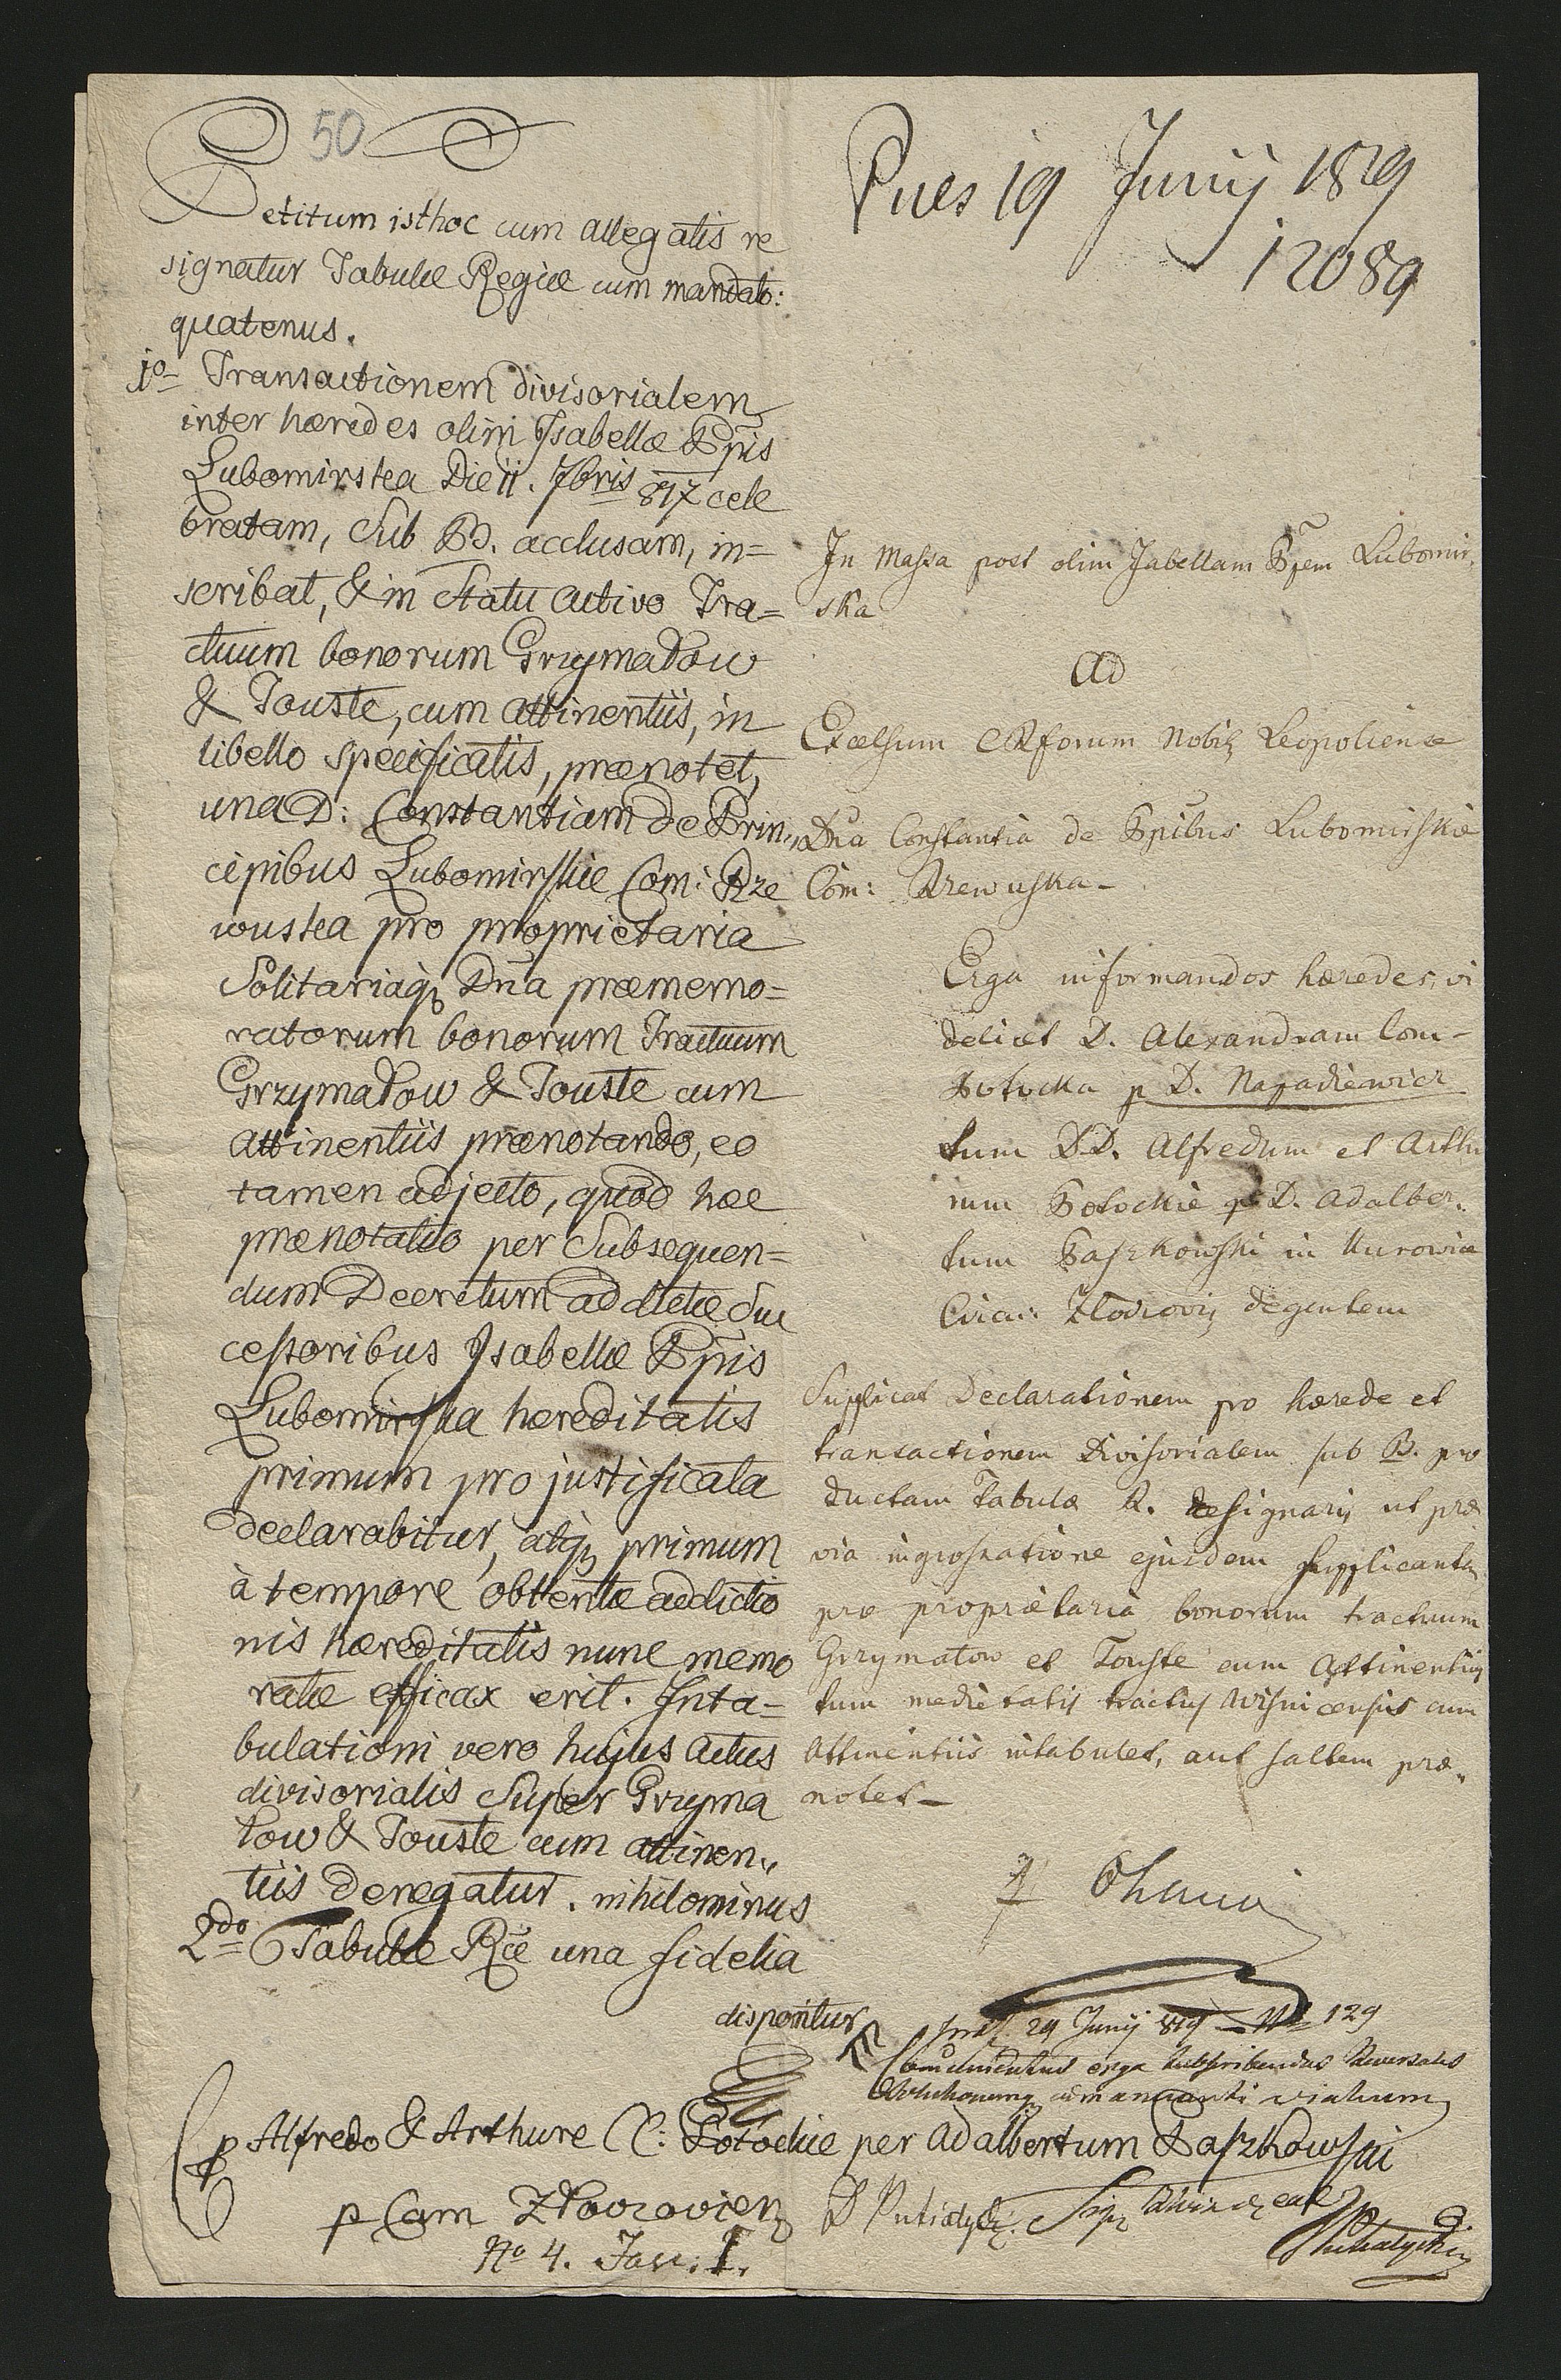 50
Petitum isthoc cum allegatis re
signatur Tabulæ Regiæ cum mandato:
quatenus.
1o Transactionem divisorialem
inter hæredes olim Isabellæ Ppis
Lubomirska Die 11. 7bris 817 cele
bratam, sub B. acclusam, in=
scribat, & in statu activo Tra=
ctuum bonorum Grzymałow
& Touste, cum attinentiis, in
libello specificatis, prænotet,
una D: Constantiam de Prin„
cipibus Lubomirskie Com: Rze
wuska pro proprietaria
Solitariaq Dña præmemo=
ratorum bonorum Tractuum
Grzymałow & Touste cum
attinentiis prænotando, eo
tamen adjecto, quod hæc
prænotatio per subsequen=
dum Decretum addictæ suc
cessoribus Isabellæ Ppis
Lubomirska hæreditatis
primum pro justificata
declarabitur, atq primum
à tempore obtentæ addictio
nis hæreditatis nunc memo
ratæ efficax erit. Inta=
bulationi vero hujus actus
divisorialis super Grzyma
łow & Touste cum attinen„
tiis denegatur. nihilominus
2do Tabulæ Ræ una fidelia
disponitur
Pues 19 Junij 1819
12089
In Massa post olim Isabellam Ppem Lubomir
ska
Ad
Excelsum CRforum Nobil Leopoliense
Dña Constantia de Ppibus Lubomirskie
Com: Rzewuska –
Erga informandos hæredes, vi
delicet D. Alexandram Com–
Potocka p D. Napadiewicz
tum DD. Alfredum et Arthu
rum Potockie p D. Adalber„
tum Paszkowski in Kurowice
Circu: Złoczovi degentem
Supplicat Declarationem pro hærede et
transactionem Divisorialem sub B. pro
ductam Tabulæ R. resignari, ut præ
via ingrossatione ejusdem supplicantem
pro proprietaria bonorum tractuum
Grzymałow et Touste cum Attinentiis
tum medietatis tractus Wisnicensis cum
Attinentiis intabulet, aut saltem præ„
notet –
præs. 29 Junij 819 – No 129
erga subscribendas Reversales
p Alfredo & Arthure CC: Potockie per Adalbertum Paszkowski
p Cam Złoczovien
No 4. Fasc: I.